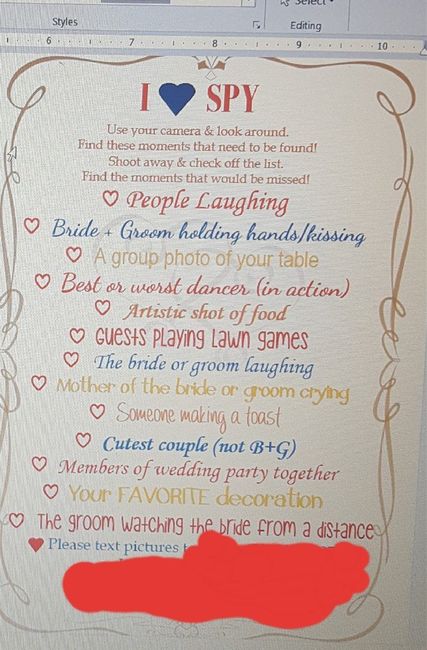 Select
Styles
Editing
6 7 8 9 10
I SPY
Use your camera & look around.
Find these moments that need to be found!
Shoot away & check off the list.
Find the moments that would be missed!
People Laughing
Bride + Groom holding hands/kissing
A group photo of your table
Best or worst dancer (in action)
Artistic shot of food
Guests playing lawn games
The bride or groom laughing
Mother of the bride or groom crying
Someone making a toast
Cutest couple (not B+G)
Members of wedding party together
Your FAVORITE decoration
The groom watching the bride from a distance
Please text pictures